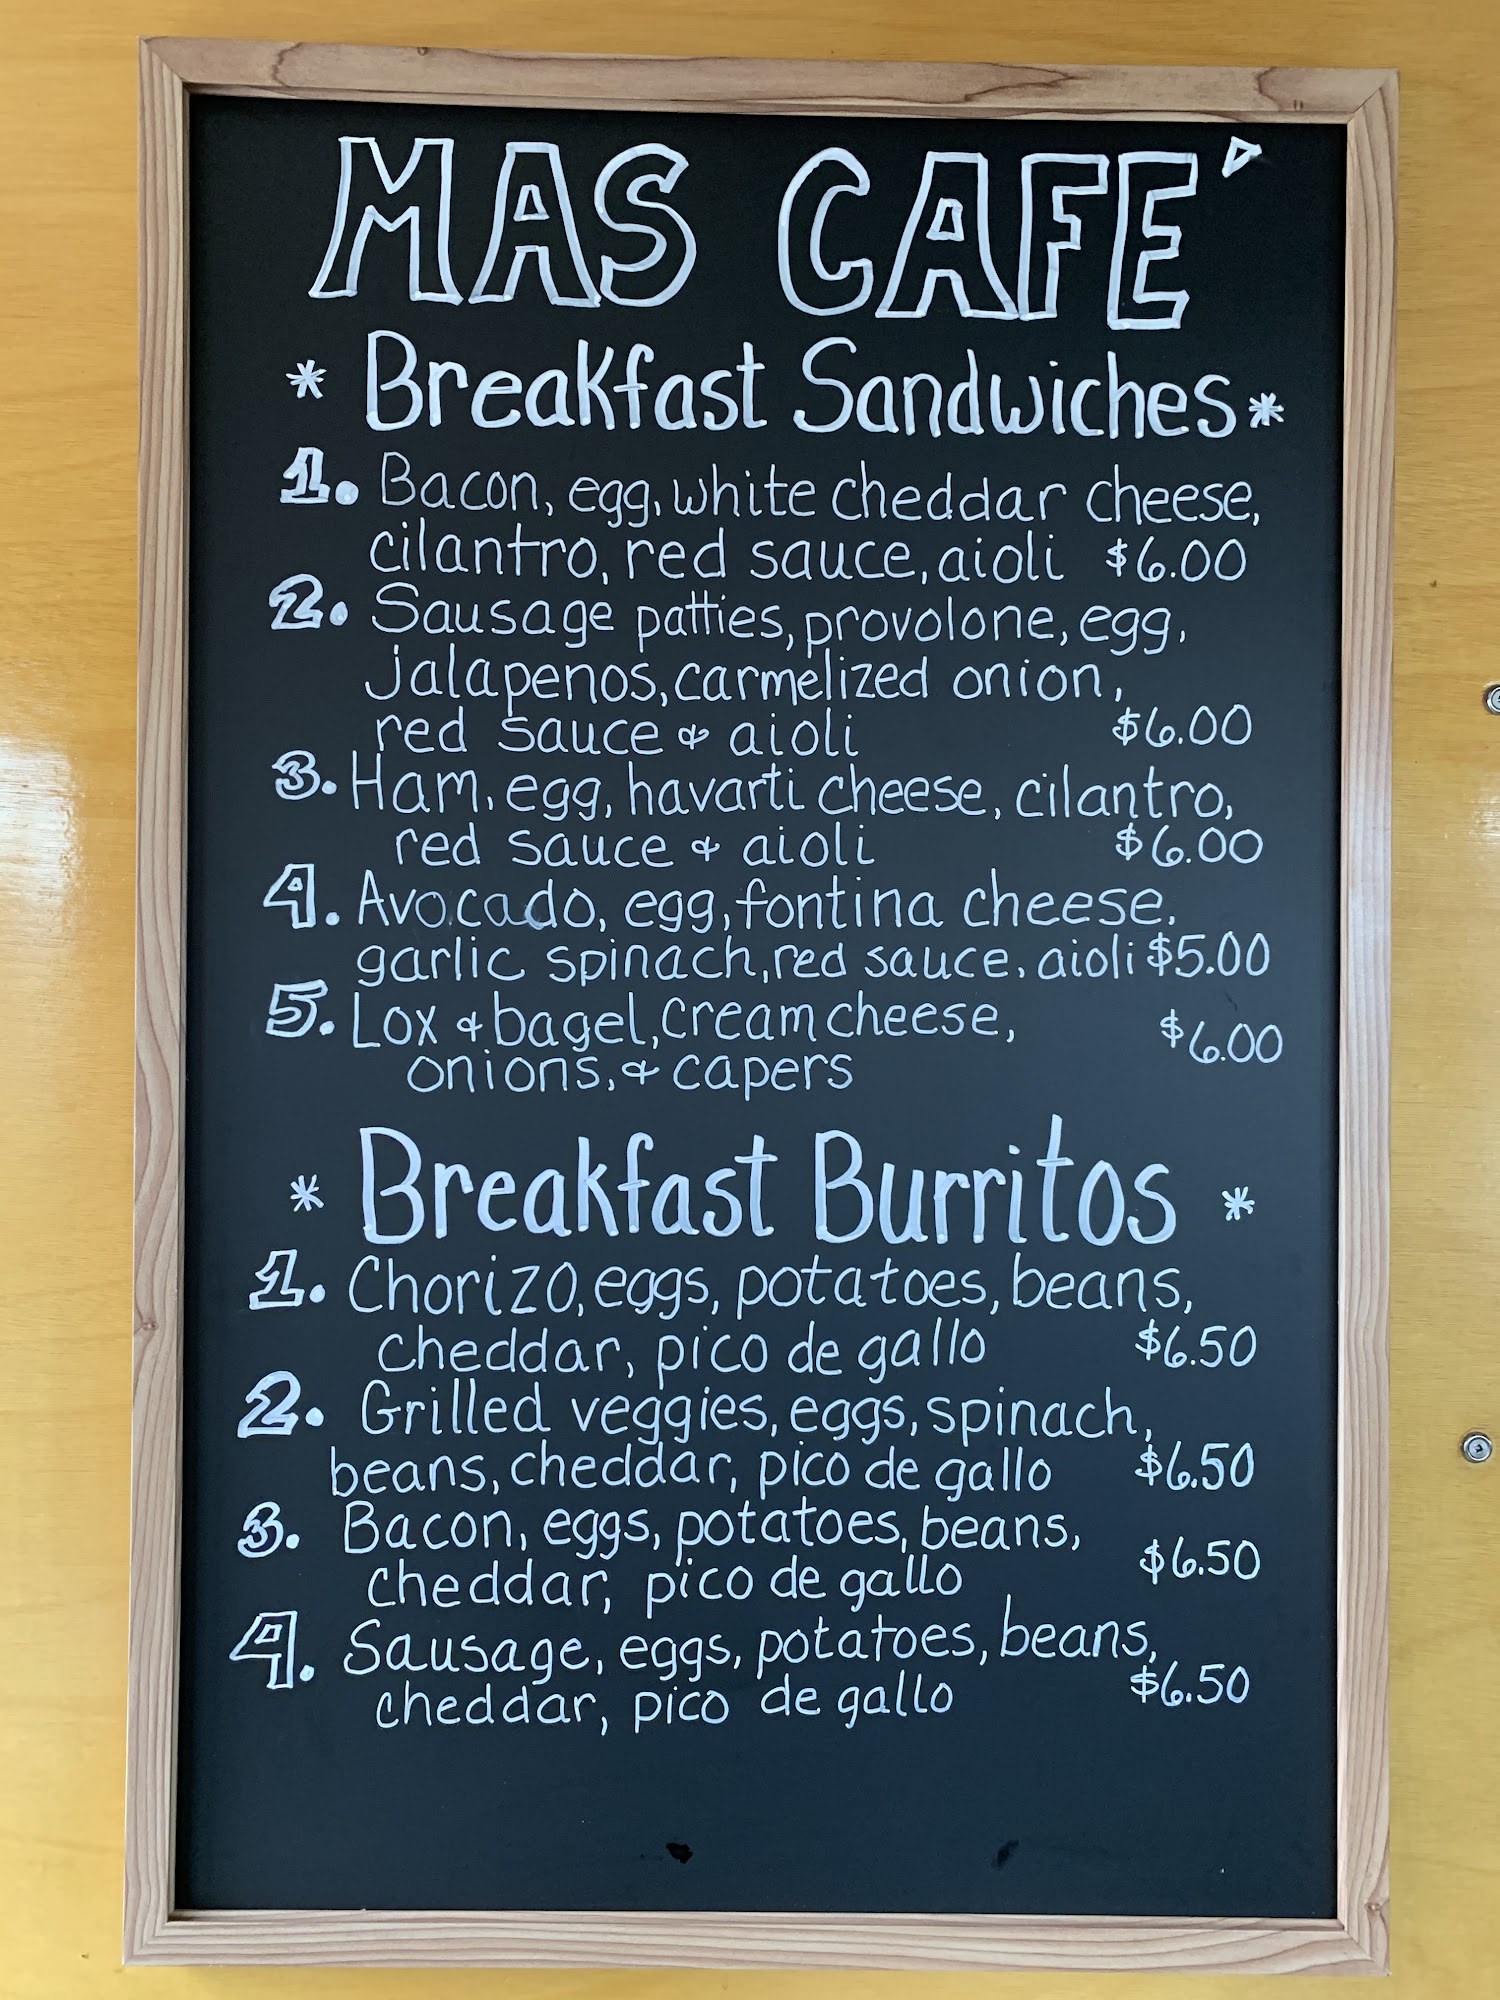 MAS CAFE´
* Breakfast Sandwiches *
1. Bacon, egg, white cheddar cheese,
cilantro, red sauce, aioli $6.00
2. Sausage patties, provolone, egg,
jalapenos, carmelized onion,
red sauce & aioli $6.00
3. Ham, egg, havarti cheese, cilantro,
red sauce & aioli $6.00
4. Avocado, egg, fontina cheese,
garlic spinach, red sauce, aioli $5.00
5. Lox & bagel, cream cheese,
onions, & capers $6.00
* Breakfast Burritos *
1. Chorizo, eggs, potatoes, beans,
cheddar, pico de gallo $6.50
2. Grilled veggies, eggs, spinach,
beans, cheddar, pico de gallo $6.50
3. Bacon, eggs, potatoes, beans,
cheddar, pico de gallo $6.50
4. Sausage, eggs, potatoes, beans,
cheddar, pico de gallo $6.50